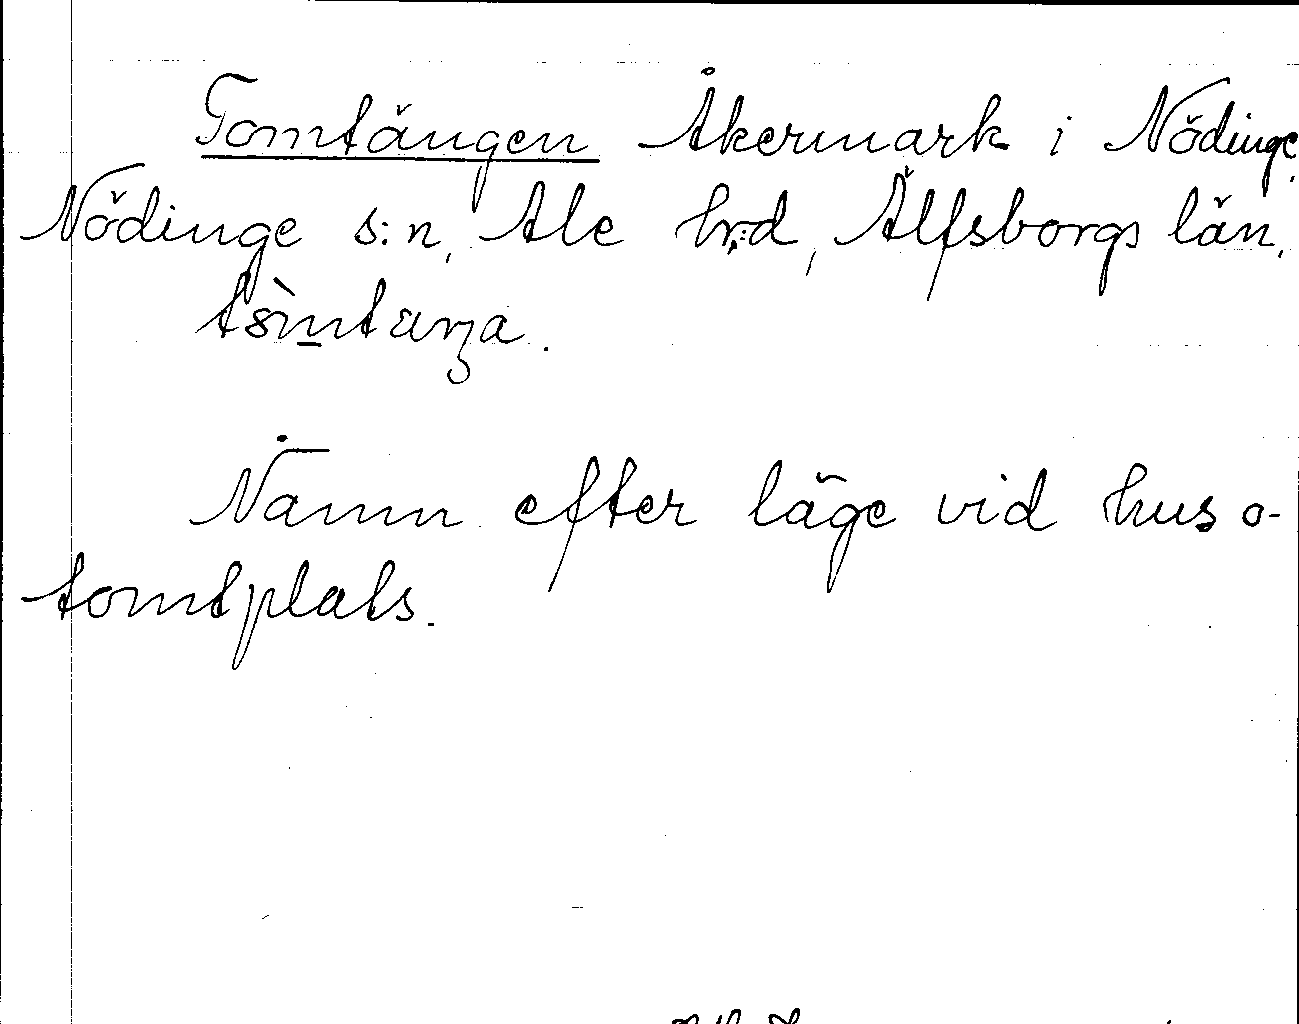 Tomtängen Åkermark i Nödinge,
Nödinge s:n, Ale hrd, Älfsborgs län.
Namn efter läge vid hus o-
tomtplats.